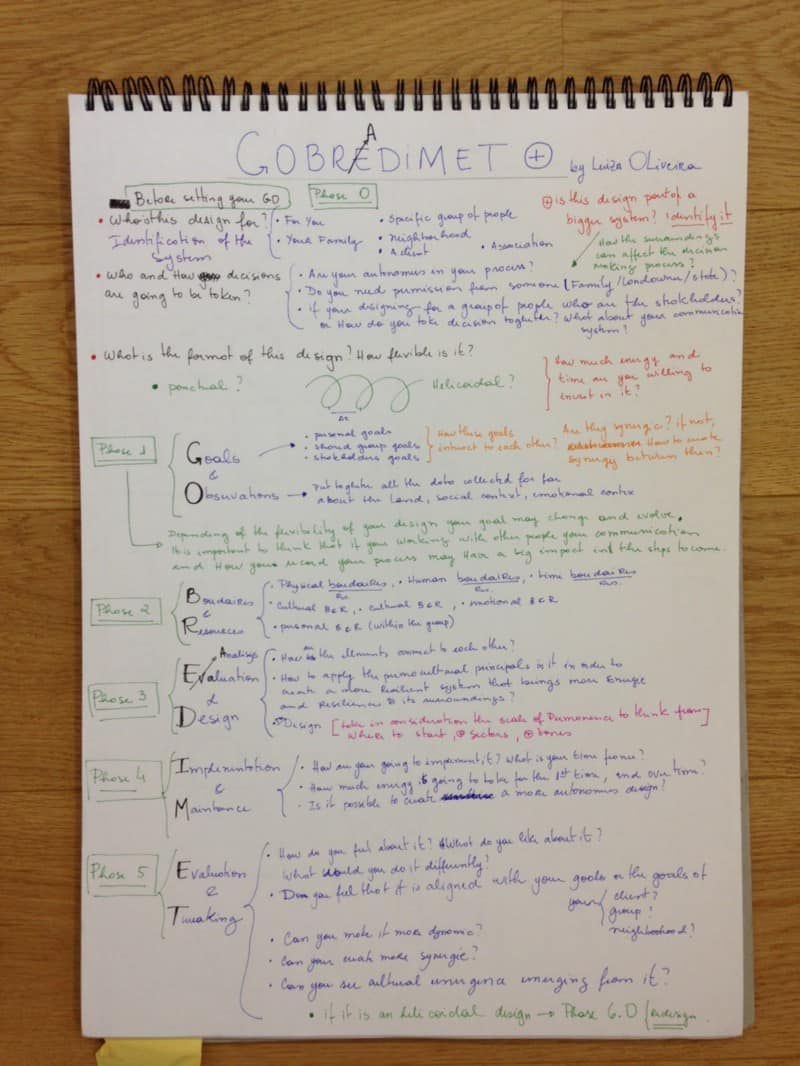 A
GOBREDIMET + by Luiza OLiveira
Before setting your GO
Phase 0
• Who's this design for?
Identification of the
System
• For You
• Your Family
• Specific group of people
• Neighborhood
• A client
• Association
+ is this design part of a
bigger system? identify it
How the surroundings
can affect the decision
making process?
• Who and How decisions
are going to be taken?
• Are your autonomus in your process?
• Do you need permission from someone (Family/landowner/state)?
• if your designing for a group of people who are the stakeholders?
or How do you take decision togheter? What about your communication
system?
• What is the format of this design? How flexible is it?
• ponctual?
Helicoidal?
How much energy and
time are you willing to
invest in it?
Phase 1
Goals
&
Observations
• personal goals
• should group goals
• stakeholders goals
How these goals
interact to each other?
Are they synergic? if not,
How to create
synergy between them?
Put togheter all the data collected so far
about the Land, social context, emotional contex
Depending of the flexibility of your design your goal may change and evolve.
It is important to think that if your working with other people your communication
and How your record your process may Have a big impact int the steps to come.
Phase 2
Boudaires
&
Resources
• Physical boudaires, • Human boudaires, • time boudaires
Res. Res. Res.
• Cultural B&R, • cultural B&R, • emotional B&R
• personal B&R (within the group)
Phase 3
Analisys
Evaluation
&
Design
• How the elements connect to each other?
• How to apply the permacultural principals in it in order to
create a more Resilient system that brings more Energie
and Resilience to its surroundings?
• Design [take in consideration the scale of Permanence to think from]
where to start, + sectors, + zones
Phase 4
Implementation
&
Maintance
• How are you going to implement it? What is your time frame?
• How much energy is going to take for the 1st time, and over time?
• Is it possible to create a more autonomus design?
Phase 5
Evaluation
&
Tweaking
• How do you feel about it? What do you like about it?
What would you do it differently?
• Do you feel that it is aligned with your goals or the goals of
your
client?
group?
neighborhood?
• Can you make it more dynamic?
• Can you create more synergie?
• Can you see cultural emergence emerging from it?
• if it is an helicoidal design → Phase 6.0 / Redesign